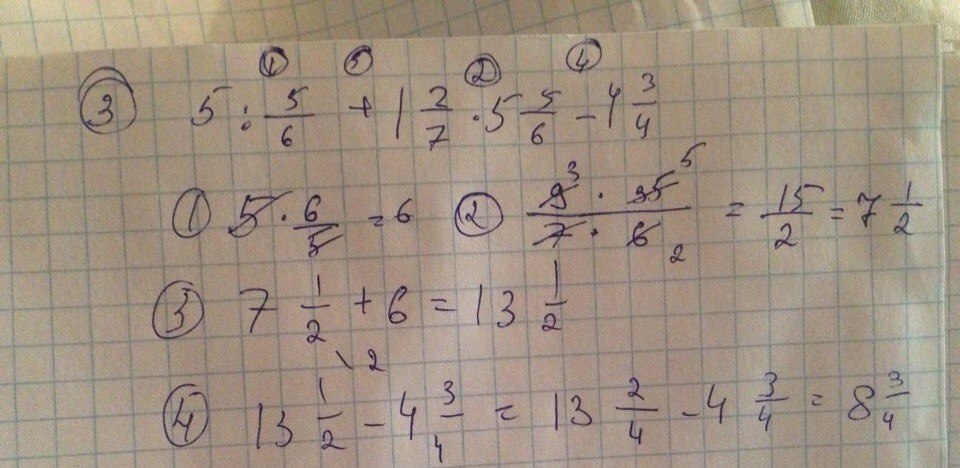 ① ③ ② ④
③ 5 : 5/6 + 1 2/7 · 5 5/6 - 4 3/4
① 5 · 6/5 = 6 ② 9³ · 35⁵ / 7 · 6₂ = 15/2 = 7 1/2
③ 7 1/2 + 6 = 13 1/2
④ 13 1/2 \2 - 4 3/4 = 13 2/4 - 4 3/4 = 8 3/4